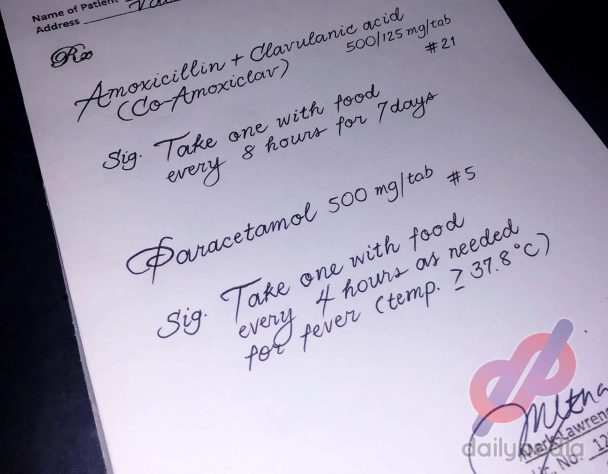 Name of Patient
Address
Rx
Amoxicillin + Clavulanic acid
(Co-Amoxiclav) 500/125 mg/tab
#21
Sig. Take one with food
every 8 hours for 7 days
Paracetamol 500 mg/tab #5
Sig. Take one with food
every 4 hours as needed
for fever (temp. ≥ 37.8°C)
Mark Lawrence
dailypedia